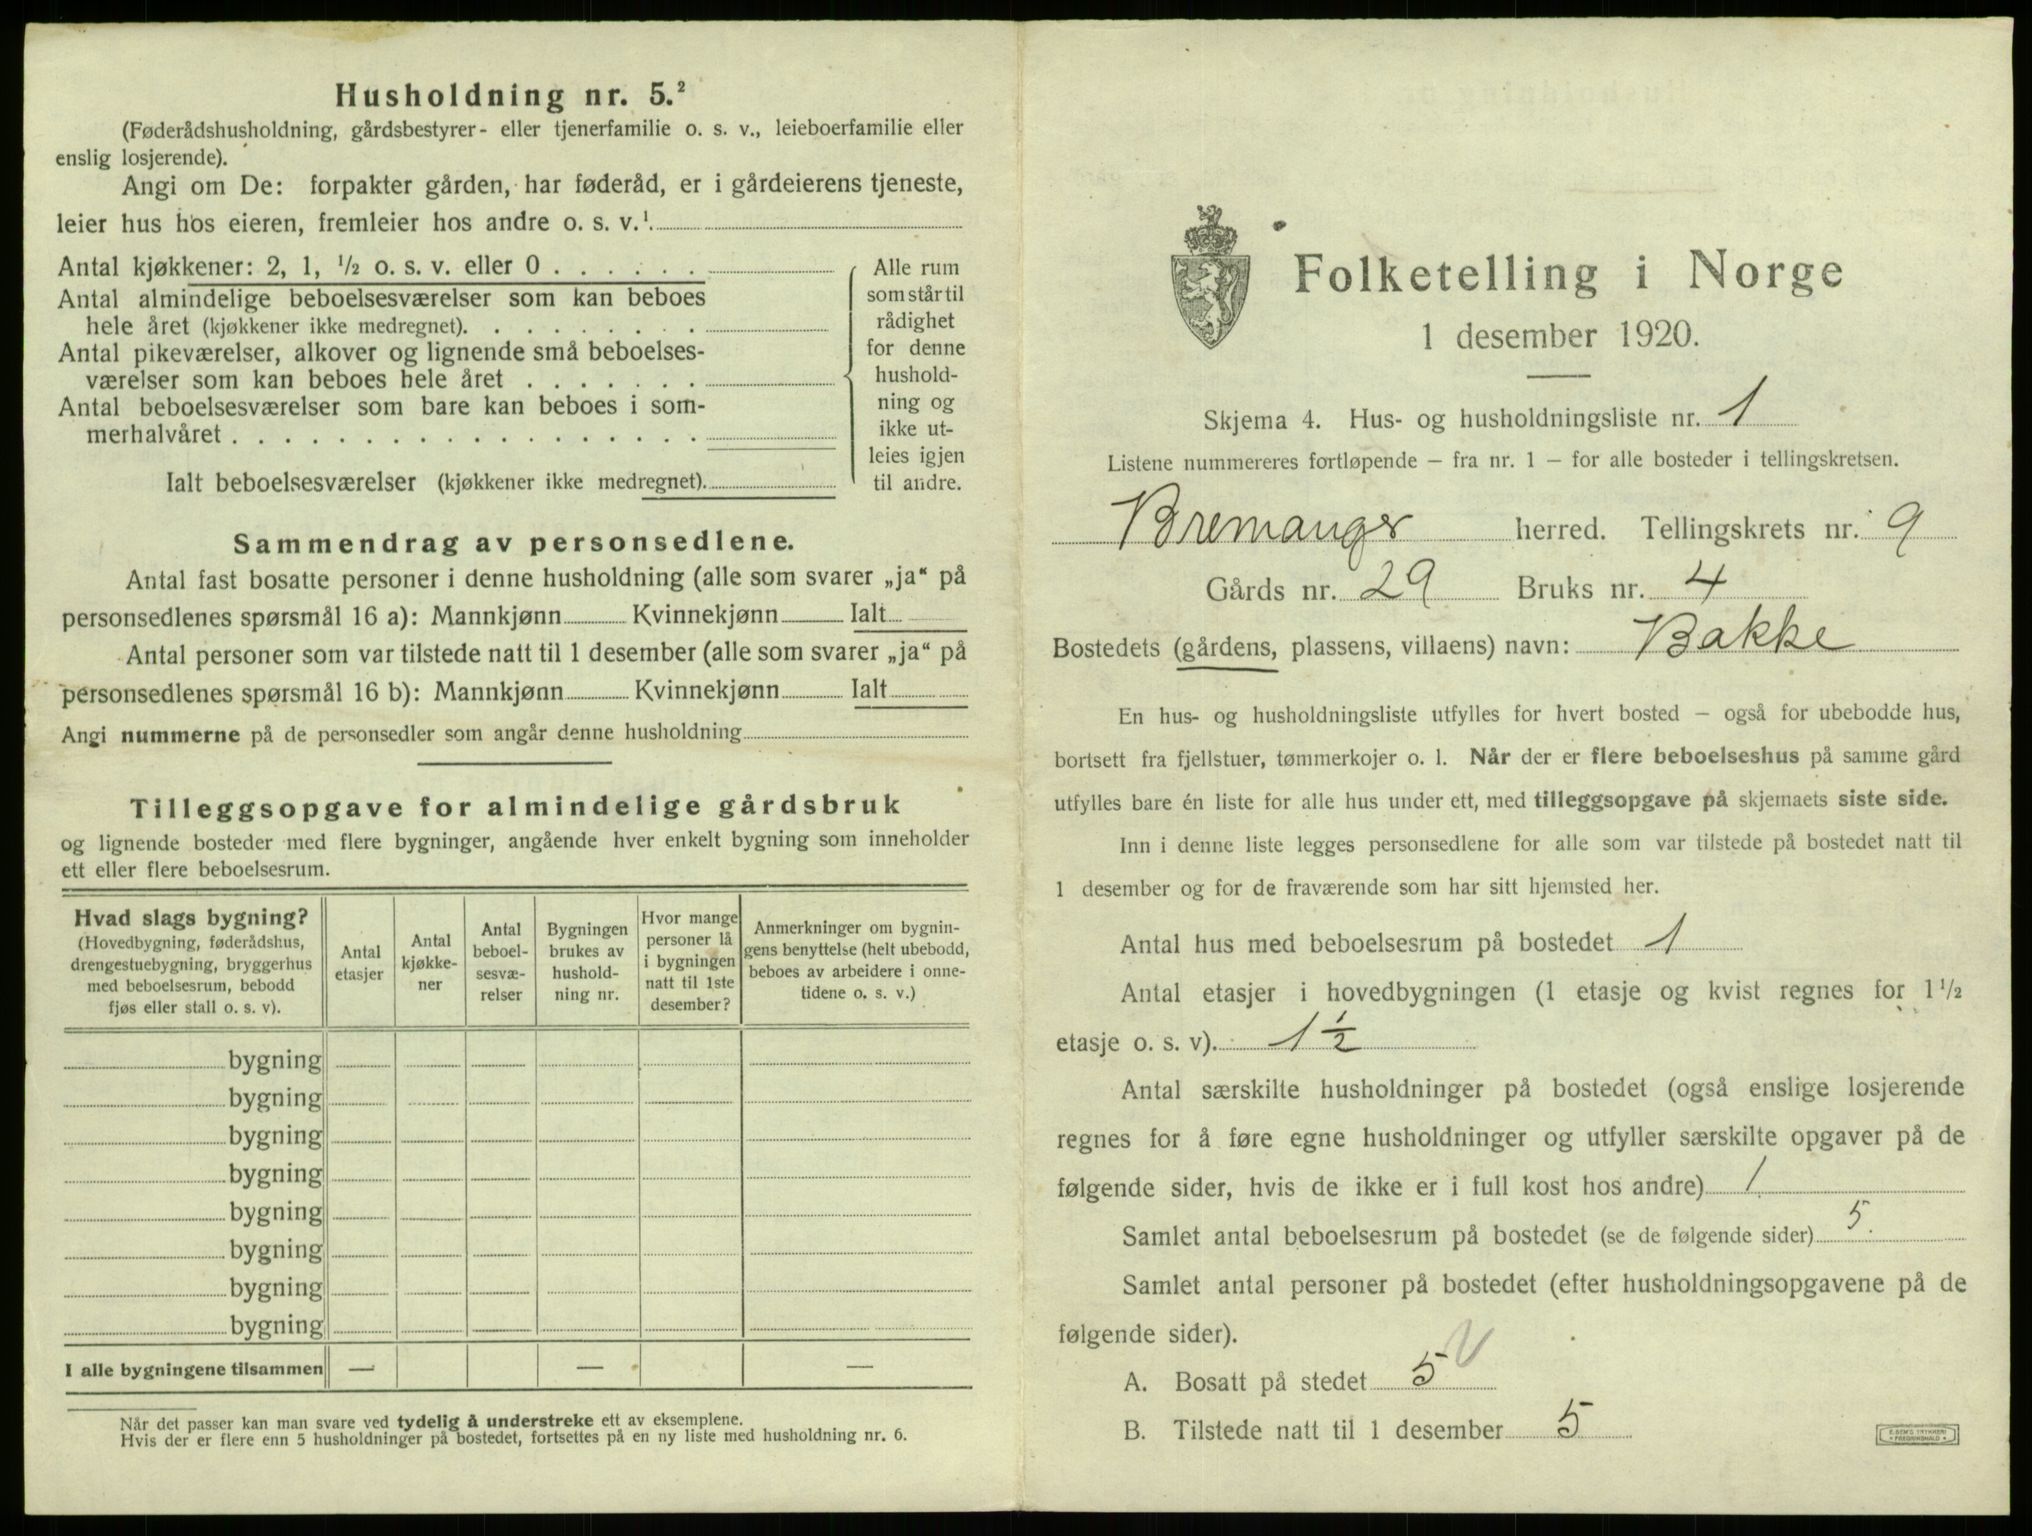 Husholdning nr. 5.²
(Føderådshusholdning, gårdsbestyrer- eller tjenerfamilie o. s. v., leieboerfamilie eller
enslig losjerende).
Angi om De: forpakter gården, har føderåd, er i gårdeierens tjeneste,
leier hus hos eieren, fremleier hos andre o. s. v.¹
Antal kjøkkener: 2, 1, ½ o. s. v. eller 0
Antal almindelige beboelsesværelser som kan beboes
hele året (kjøkkener ikke medregnet).
Antal pikeværelser, alkover og lignende små beboelses-
værelser som kan beboes hele året
Antal beboelsesværelser som bare kan beboes i som-
merhalvåret
Ialt beboelsesværelser (kjøkkener ikke medregnet).
Alle rum
som står til
rådighet
for denne
hushold-
ning og
ikke ut-
leies igjen
til andre.
Sammendrag av personsedlene.
Antal fast bosatte personer i denne husholdning (alle som svarer „ja“ på
personsedlenes spørsmål 16 a): Mannkjønn Kvinnekjønn Ialt
Antal personer som var tilstede natt til 1 desember (alle som svarer „ja“ på
personsedlenes spørsmål 16 b): Mannkjønn Kvinnekjønn Ialt
Angi nummerne på de personsedler som angår denne husholdning
Tilleggsopgave for almindelige gårdsbruk
og lignende bosteder med flere bygninger, angående hver enkelt bygning som inneholder
ett eller flere beboelsesrum.
Hvad slags bygning?
(Hovedbygning, føderådshus,
drengestuebygning, bryggerhus
med beboelsesrum, bebodd
fjøs eller stall o. s. v).
Antal
etasjer
Antal
kjøkke-
ner
Antal
beboel-
sesvæ-
relser
Bygningen
brukes av
hushold-
ning nr.
Hvor mange
personer lå
i bygningen
natt til 1ste
desember?
Anmerkninger om bygnin-
gens benyttelse (helt ubebodd,
beboes av arbeidere i onne-
tidene o. s. v.)
bygning
bygning
bygning
bygning
bygning
bygning
bygning
bygning
I alle bygningene tilsammen — — —
Når det passer kan man svare ved tydelig å understreke ett av eksemplene.
Hvis der er flere enn 5 husholdninger på bostedet, fortsettes på en ny liste med husholdning nr. 6.
Folketelling i Norge
1 desember 1920.
Skjema 4. Hus- og husholdningsliste nr. 1
Listene nummereres fortløpende – fra nr. 1 – for alle bosteder i tellingskretsen.
Bremanger herred. Tellingskrets nr. 9
Gårds nr. 29 Bruks nr. 4
Bostedets (gårdens, plassens, villaens) navn: Bakke
En hus- og husholdningsliste utfylles for hvert bosted – også for ubebodde hus,
bortsett fra fjellstuer, tømmerkojer o. l. Når der er flere beboelseshus på samme gård
utfylles bare én liste for alle hus under ett, med tilleggsopgave på skjemaets siste side.
Inn i denne liste legges personsedlene for alle som var tilstede på bostedet natt til
1 desember og for de fraværende som har sitt hjemsted her.
Antal hus med beboelsesrum på bostedet 1
Antal etasjer i hovedbygningen (1 etasje og kvist regnes for 1½
etasje o. s. v). 1½
Antal særskilte husholdninger på bostedet (også enslige losjerende
regnes for å føre egne husholdninger og utfyller særskilte opgaver på de
følgende sider, hvis de ikke er i full kost hos andre) 1.
Samlet antal beboelsesrum på bostedet (se de følgende sider) 5.
Samlet antal personer på bostedet (efter husholdningsopgavene på de
følgende sider).
A. Bosatt på stedet 5
B. Tilstede natt til 1 desember 5
E. SEM'S TRYKKERI
FREDRIKSHALD